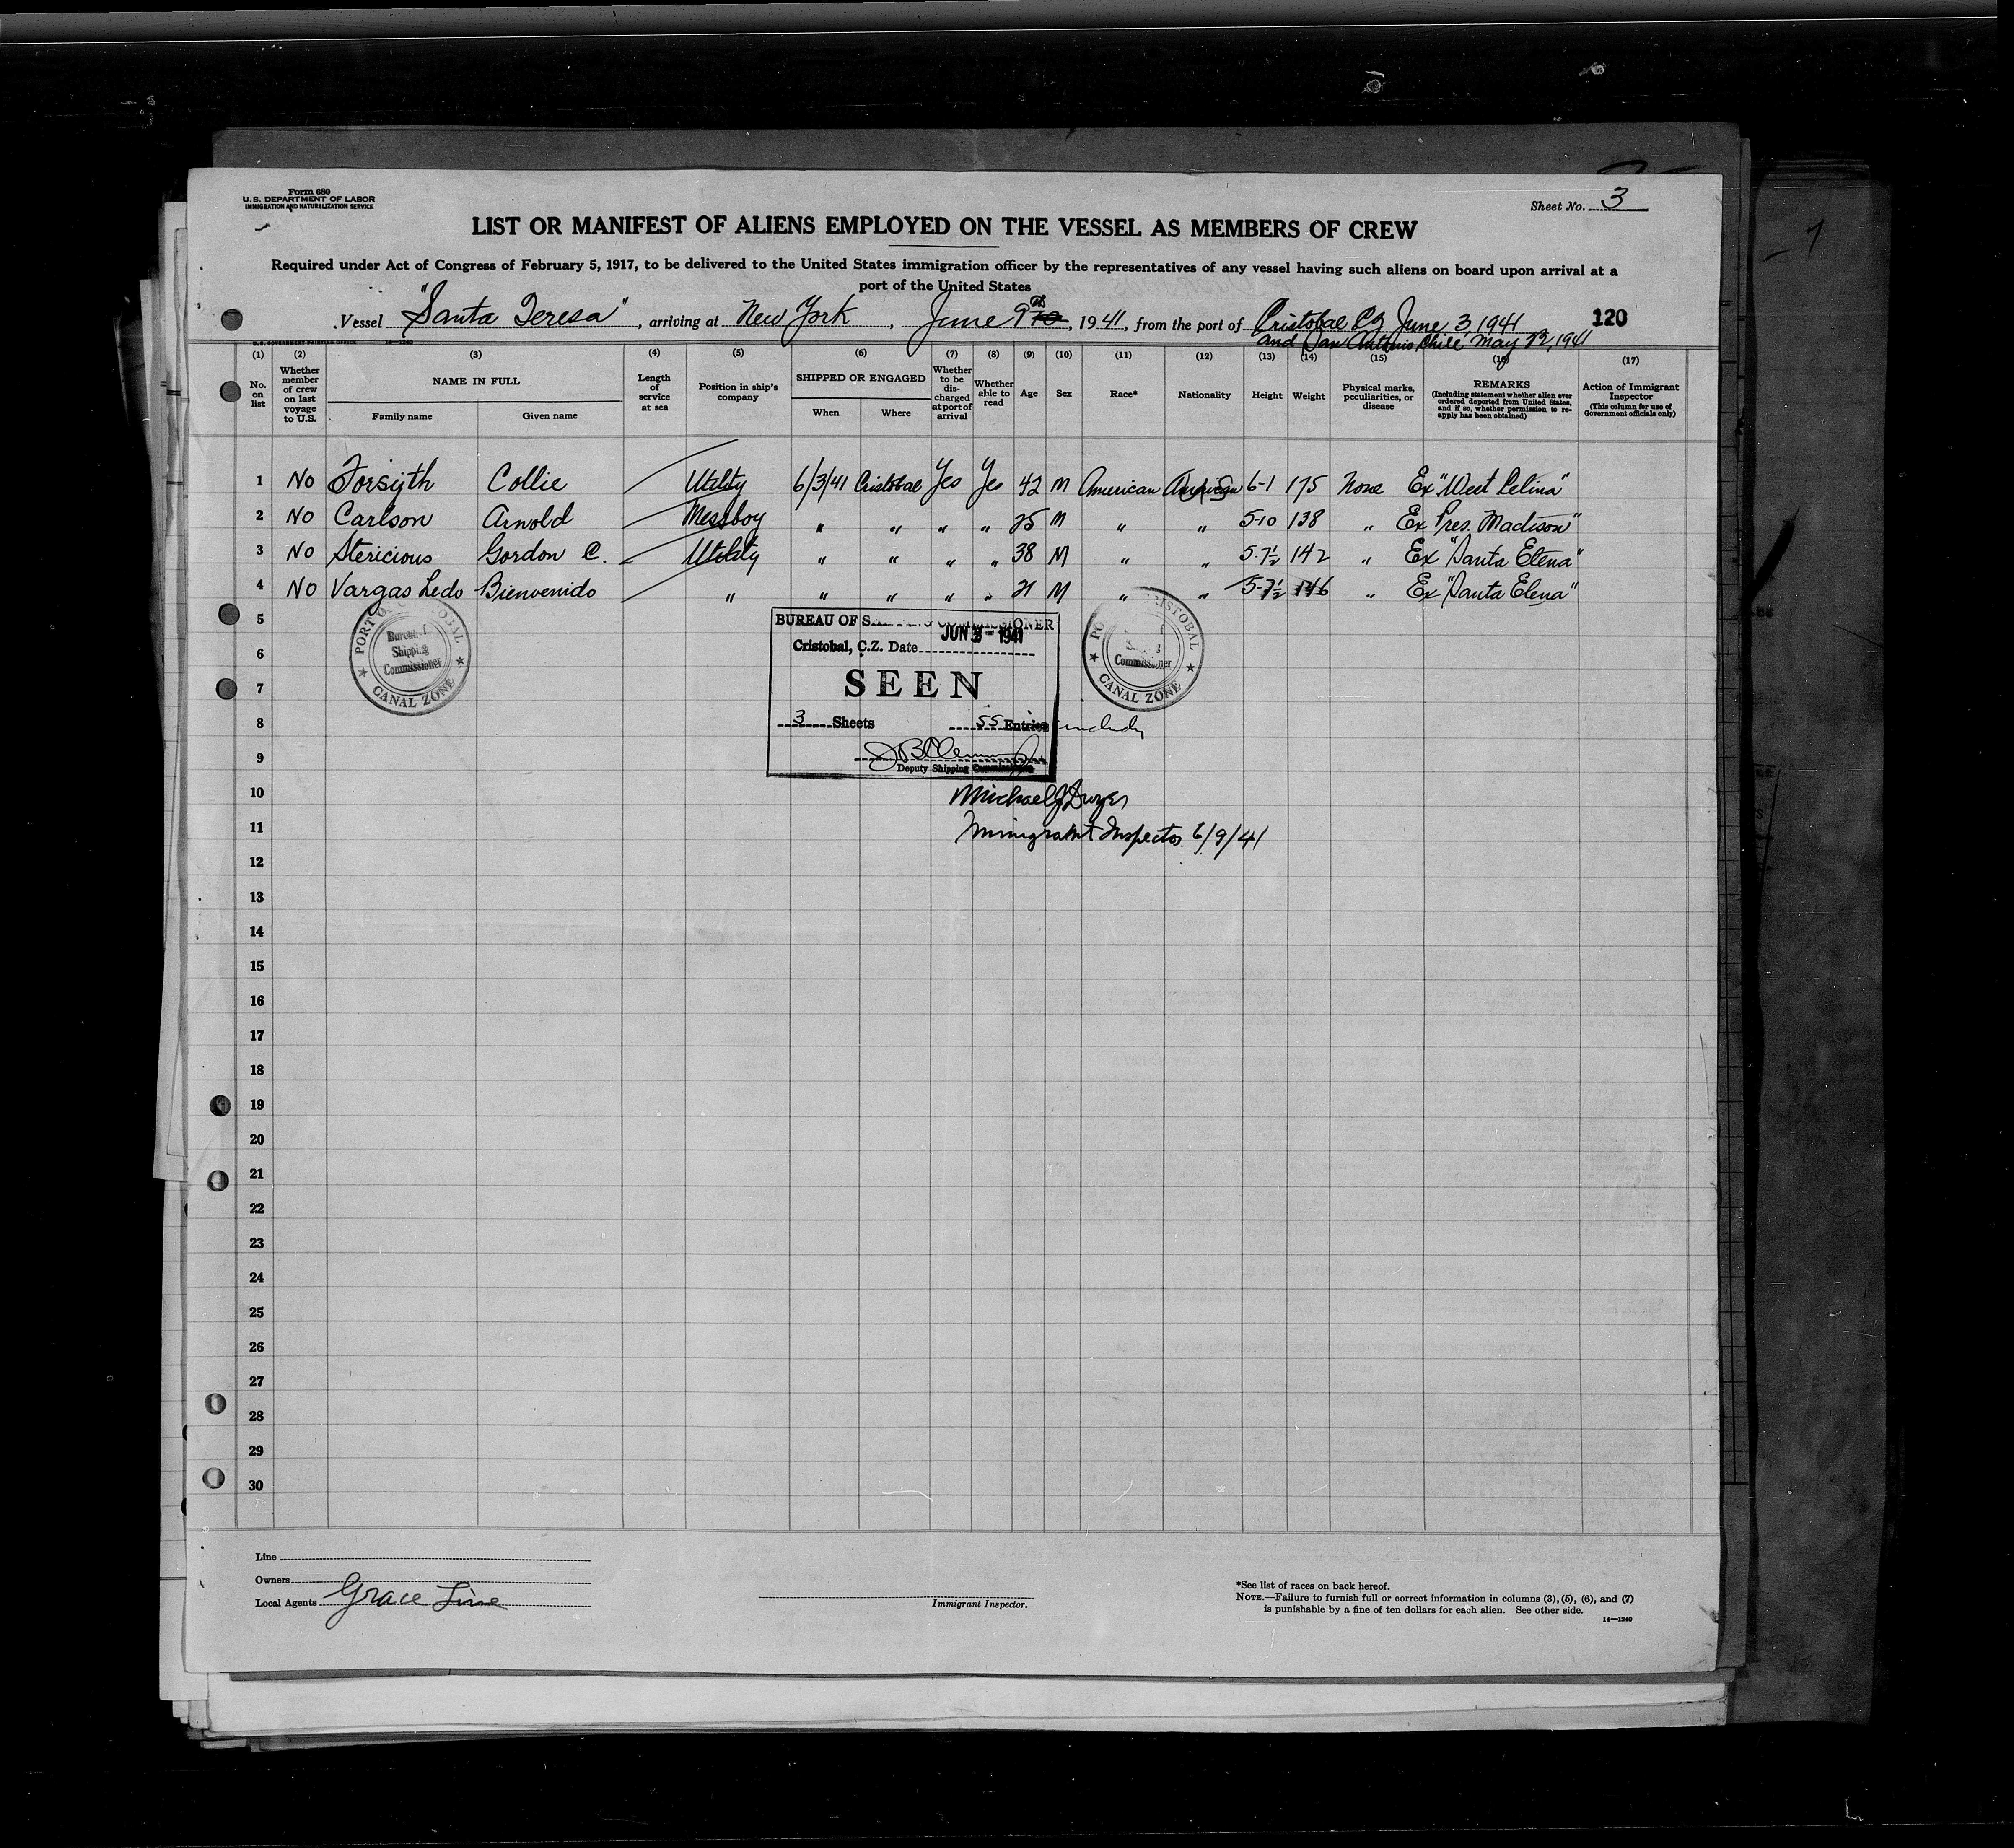 Form 680
U. S. DEPARTMENT OF LABOR
IMMIGRATION AND NATURALIZATION SERVICE
Sheet No. 3
LIST OR MANIFEST OF ALIENS EMPLOYED ON THE VESSEL AS MEMBERS OF CREW
Required under Act of Congress of February 5, 1917, to be delivered to the United States immigration officer by the representatives of any vessel having such aliens on board upon arrival at a
port of the United States
Vessel "Santa Teresa", arriving at New York, June 9th 10, 1941, from the port of Cristobal CZ June 3, 1941 120
and San Antonio, Chile May 22, 1941
U. S. GOVERNMENT PRINTING OFFICE 14—1240
(1) (2) (3) (4) (5) (6) (7) (8) (9) (10) (11) (12) (13) (14) (15) (16) (17)
No. on list
Whether member of crew on last voyage to U.S.
NAME IN FULL
Family name
Given name
Length of service at sea
Position in ship's company
SHIPPED OR ENGAGED
When
Where
Whether to be discharged at port of arrival
Whether able to read
Age
Sex
Race*
Nationality
Height
Weight
Physical marks, peculiarities, or disease
REMARKS
(Including statement whether alien ever ordered deported from United States, and if so, whether permission to reapply has been obtained)
Action of Immigrant Inspector
(This column for use of Government officials only)
1 No Forsyth Collie Utility 6/3/41 Cristobal Yes Yes 42 M American American 6-1 175 None Ex "West Celina"
2 No Carlson Arnold Messboy " " " " 25 M " " 5-10 138 " Ex "Pres. Madison"
3 No Stericious Gordon C. Utility " " " " 38 M " " 5-7½ 142 " Ex "Santa Elena"
4 No Vargas Ledo Bienvenido " " " " " 21 M " " 5-7½ 146 " Ex "Santa Elena"
5
6
7
8
9
10
11
12
13
14
15
16
17
18
19
20
21
22
23
24
25
26
27
28
29
30
PORT OF CRISTOBAL
Bureau of
Shipping
Commissioner
CANAL ZONE
BUREAU OF SHIPPING COMMISSIONER
Cristobal, C.Z. Date JUN 3 - 1941
SEEN
3 Sheets 55 Entries
Deputy Shipping Commissioner
CRISTOBAL
Commissioner
CANAL ZONE
Michael J Dwyer
Immigrant Inspector 6/9/41
Line
Owners
Local Agents Grace Line
Immigrant Inspector.
*See list of races on back hereof.
NOTE.—Failure to furnish full or correct information in columns (3), (5), (6), and (7)
is punishable by a fine of ten dollars for each alien. See other side.
14—1240